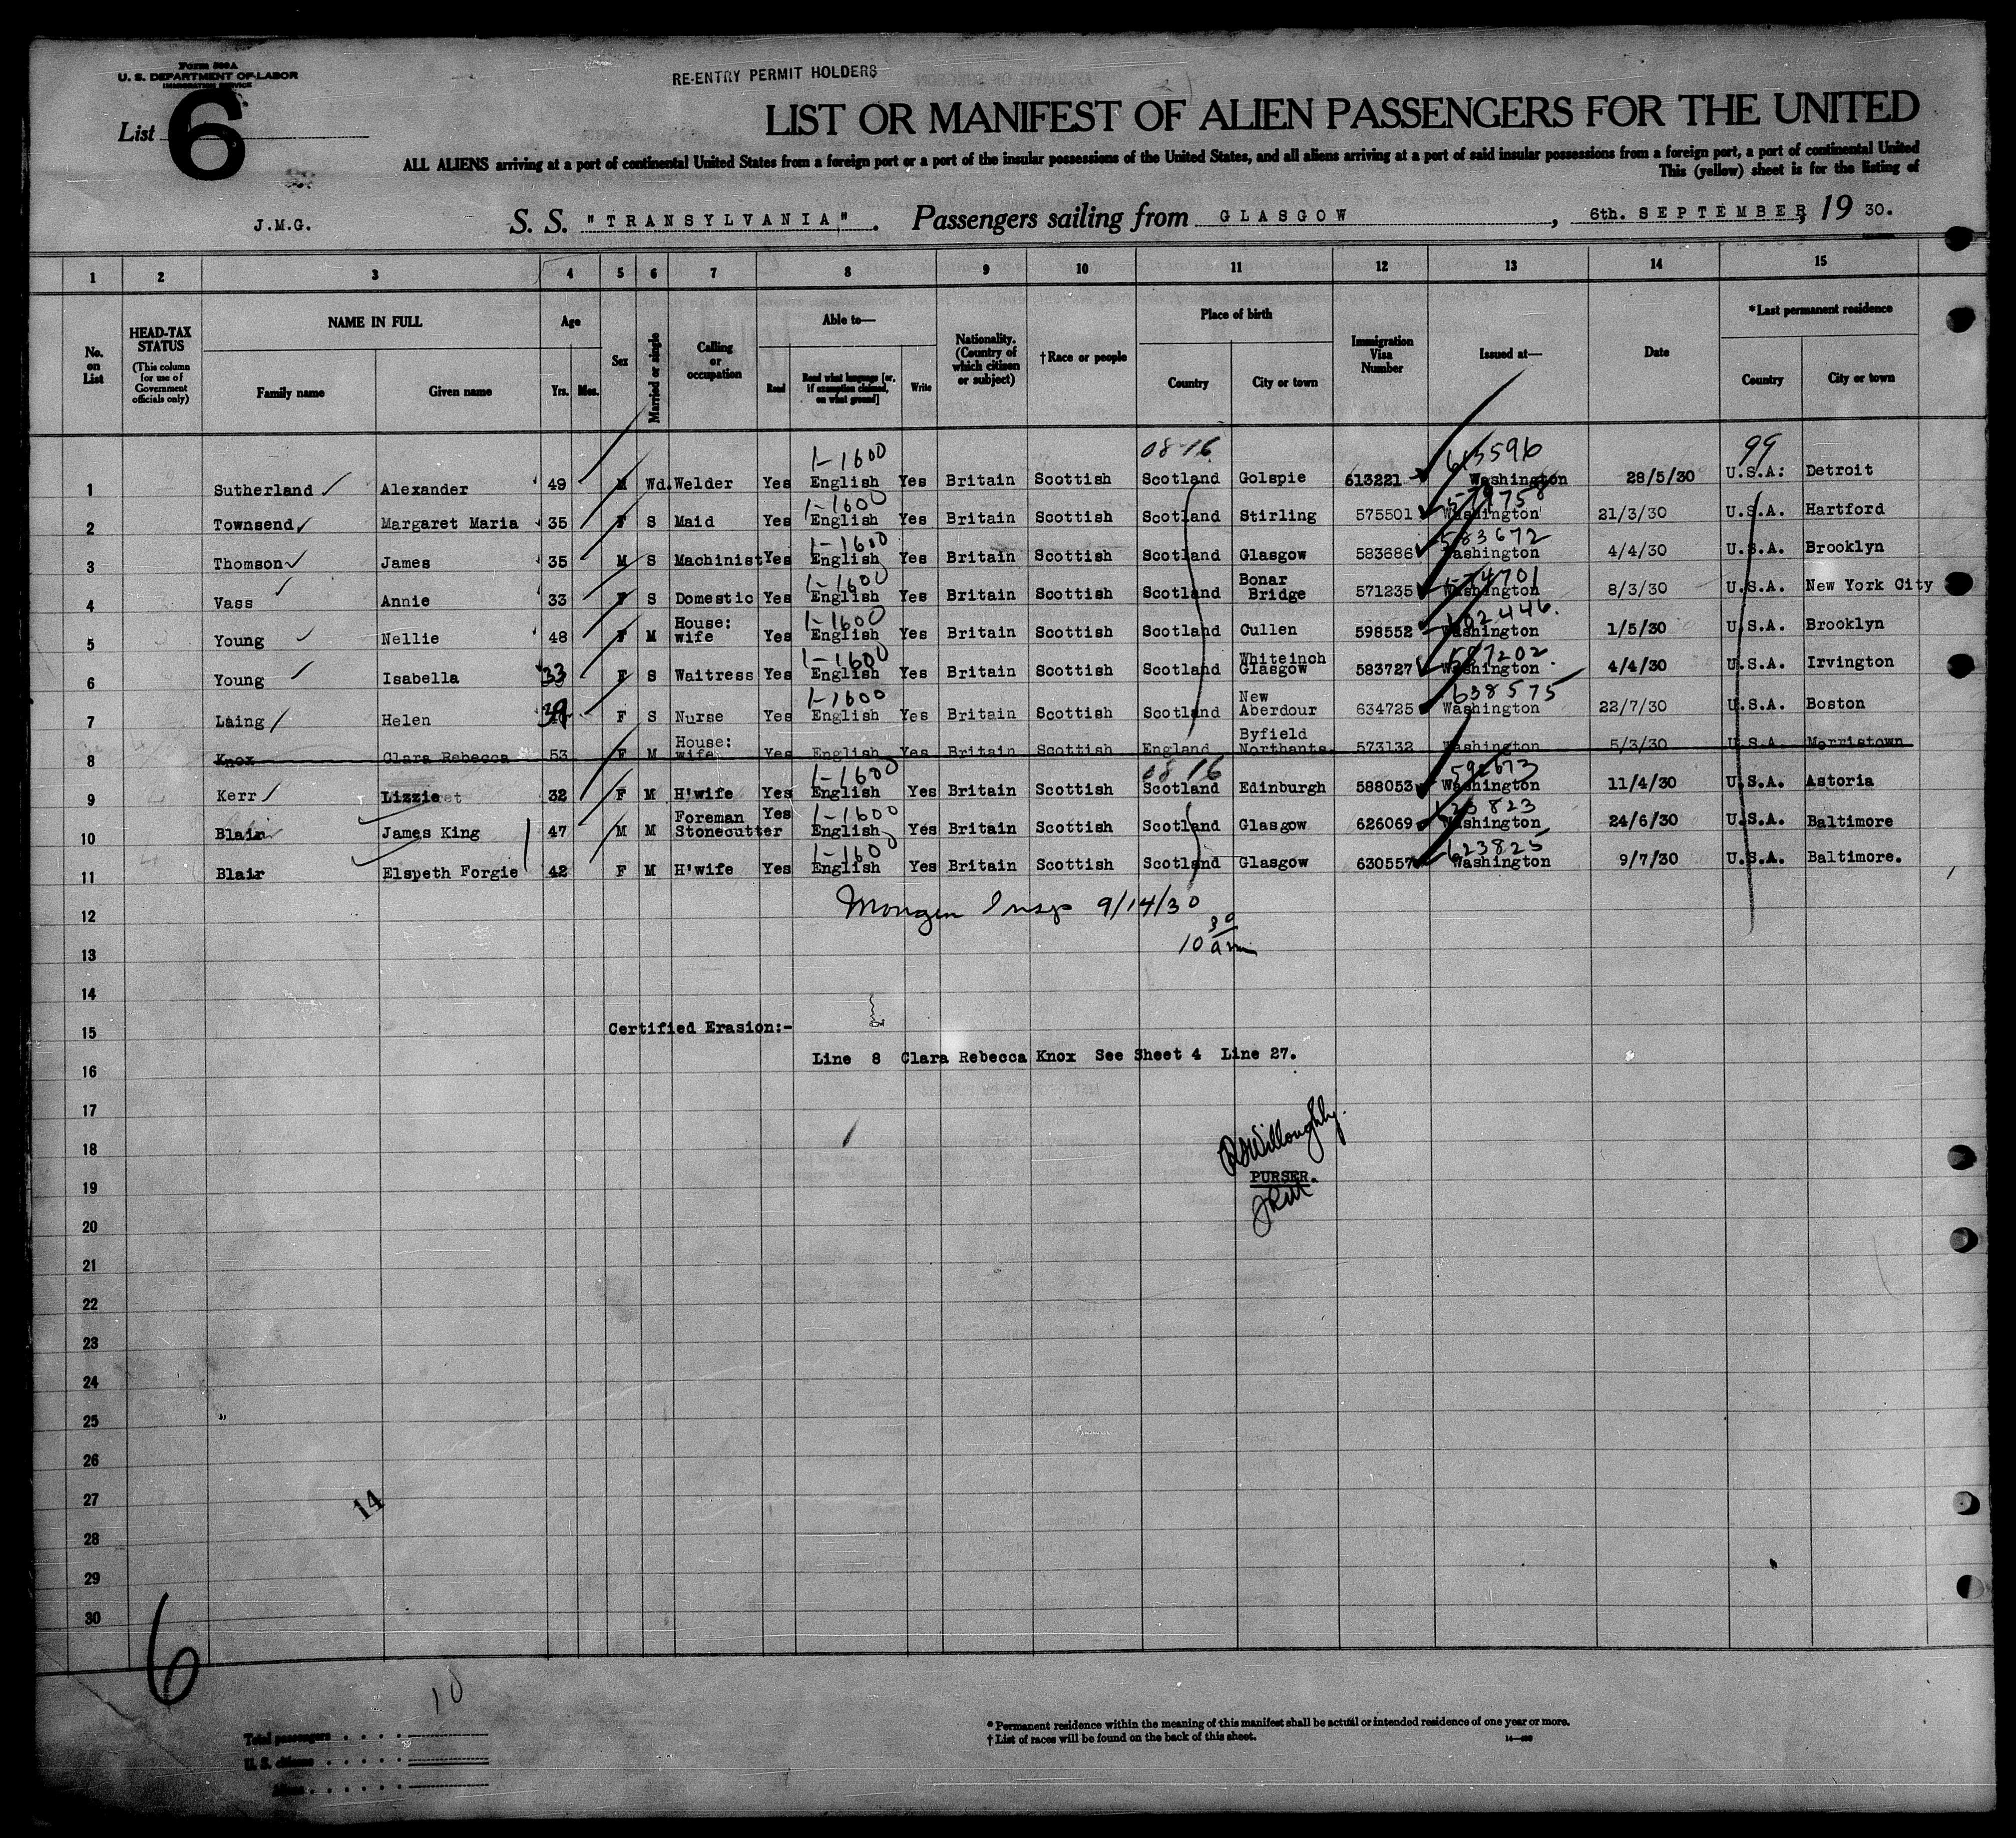 Form 500A
U. S. DEPARTMENT OF LABOR
IMMIGRATION SERVICE
RE-ENTRY PERMIT HOLDERS
List 6
LIST OR MANIFEST OF ALIEN PASSENGERS FOR THE UNITED
ALL ALIENS arriving at a port of continental United States from a foreign port or a port of the insular possessions of the United States, and all aliens arriving at a port of said insular possessions from a foreign port, a port of continental United
This (yellow) sheet is for the listing of
J.M.G. S. S. "TRANSYLVANIA". Passengers sailing from GLASGOW, 6th. SEPTEMBER, 19 30.
1 2 3 4 5 6 7 8 9 10 11 12 13 14 15
No. on List
HEAD-TAX STATUS
(This column for use of Government officials only)
NAME IN FULL
Family name Given name
Age
Yrs. Mos.
Sex
Married or single
Calling or occupation
Able to—
Read Read what language [or, if exemption claimed, on what ground] Write
Nationality. (Country of which citizen or subject)
†Race or people
Place of birth
Country City or town
Immigration Visa Number
Issued at—
Date
*Last permanent residence
Country City or town
1-1600 08-16 613596 99
1 Sutherland Alexander 49 M Wd. Welder Yes English Yes Britain Scottish Scotland Golspie 613221 Washington 28/5/30 U.S.A: Detroit
1-1600
2 Townsend Margaret Maria 35 F S Maid Yes English Yes Britain Scottish Scotland Stirling 575501 Washington 21/3/30 U.S.A. Hartford
1-1600 583672
3 Thomson James 35 M S Machinist Yes English Yes Britain Scottish Scotland Glasgow 583686 Washington 4/4/30 U.S.A. Brooklyn
1-1600 574701
4 Vass Annie 33 F S Domestic Yes English Yes Britain Scottish Scotland Bonar Bridge 571235 Washington 8/3/30 U.S.A. New York City
1-1600
5 Young Nellie 48 F M House: wife Yes English Yes Britain Scottish Scotland Cullen 598552 Washington 1/5/30 U.S.A. Brooklyn
1-1600 587202.
6 Young Isabella 33 F S Waitress Yes English Yes Britain Scottish Scotland Whiteinch Glasgow 583727 Washington 4/4/30 U.S.A. Irvington
1-1600 638575
7 Laing Helen 39 F S Nurse Yes English Yes Britain Scottish Scotland New Aberdour 634725 Washington 22/7/30 U.S.A. Boston
8 Knox Clara Rebecca 53 F M House: wife Yes English Yes Britain Scottish England Byfield Northants. 573132 Washington 5/3/30 U.S.A. Morristown
1-1600 08 16 592673
9 Kerr Lizzie 32 F M H'wife Yes English Yes Britain Scottish Scotland Edinburgh 588053 Washington 11/4/30 U.S.A. Astoria
1-1600
10 Blair James King 47 M M Foreman Stonecutter Yes English Yes Britain Scottish Scotland Glasgow 626069 Washington 24/6/30 U.S.A. Baltimore
1-1600 623825
11 Blair Elspeth Forgie 42 F M H'wife Yes English Yes Britain Scottish Scotland Glasgow 630557 Washington 9/7/30 U.S.A. Baltimore.
12 Insp 9/14/30
13 10 30 am
14
15 Certified Erasion:-
16 Line 8 Clara Rebecca Knox See Sheet 4 Line 27.
17
18 Willoughby.
19 PURSER.
20
21
22
23
24
25
26
27 14
28
29
30
6
10
Total passengers
U. S. citizens
Aliens
* Permanent residence within the meaning of this manifest shall be actual or intended residence of one year or more.
† List of races will be found on the back of this sheet.